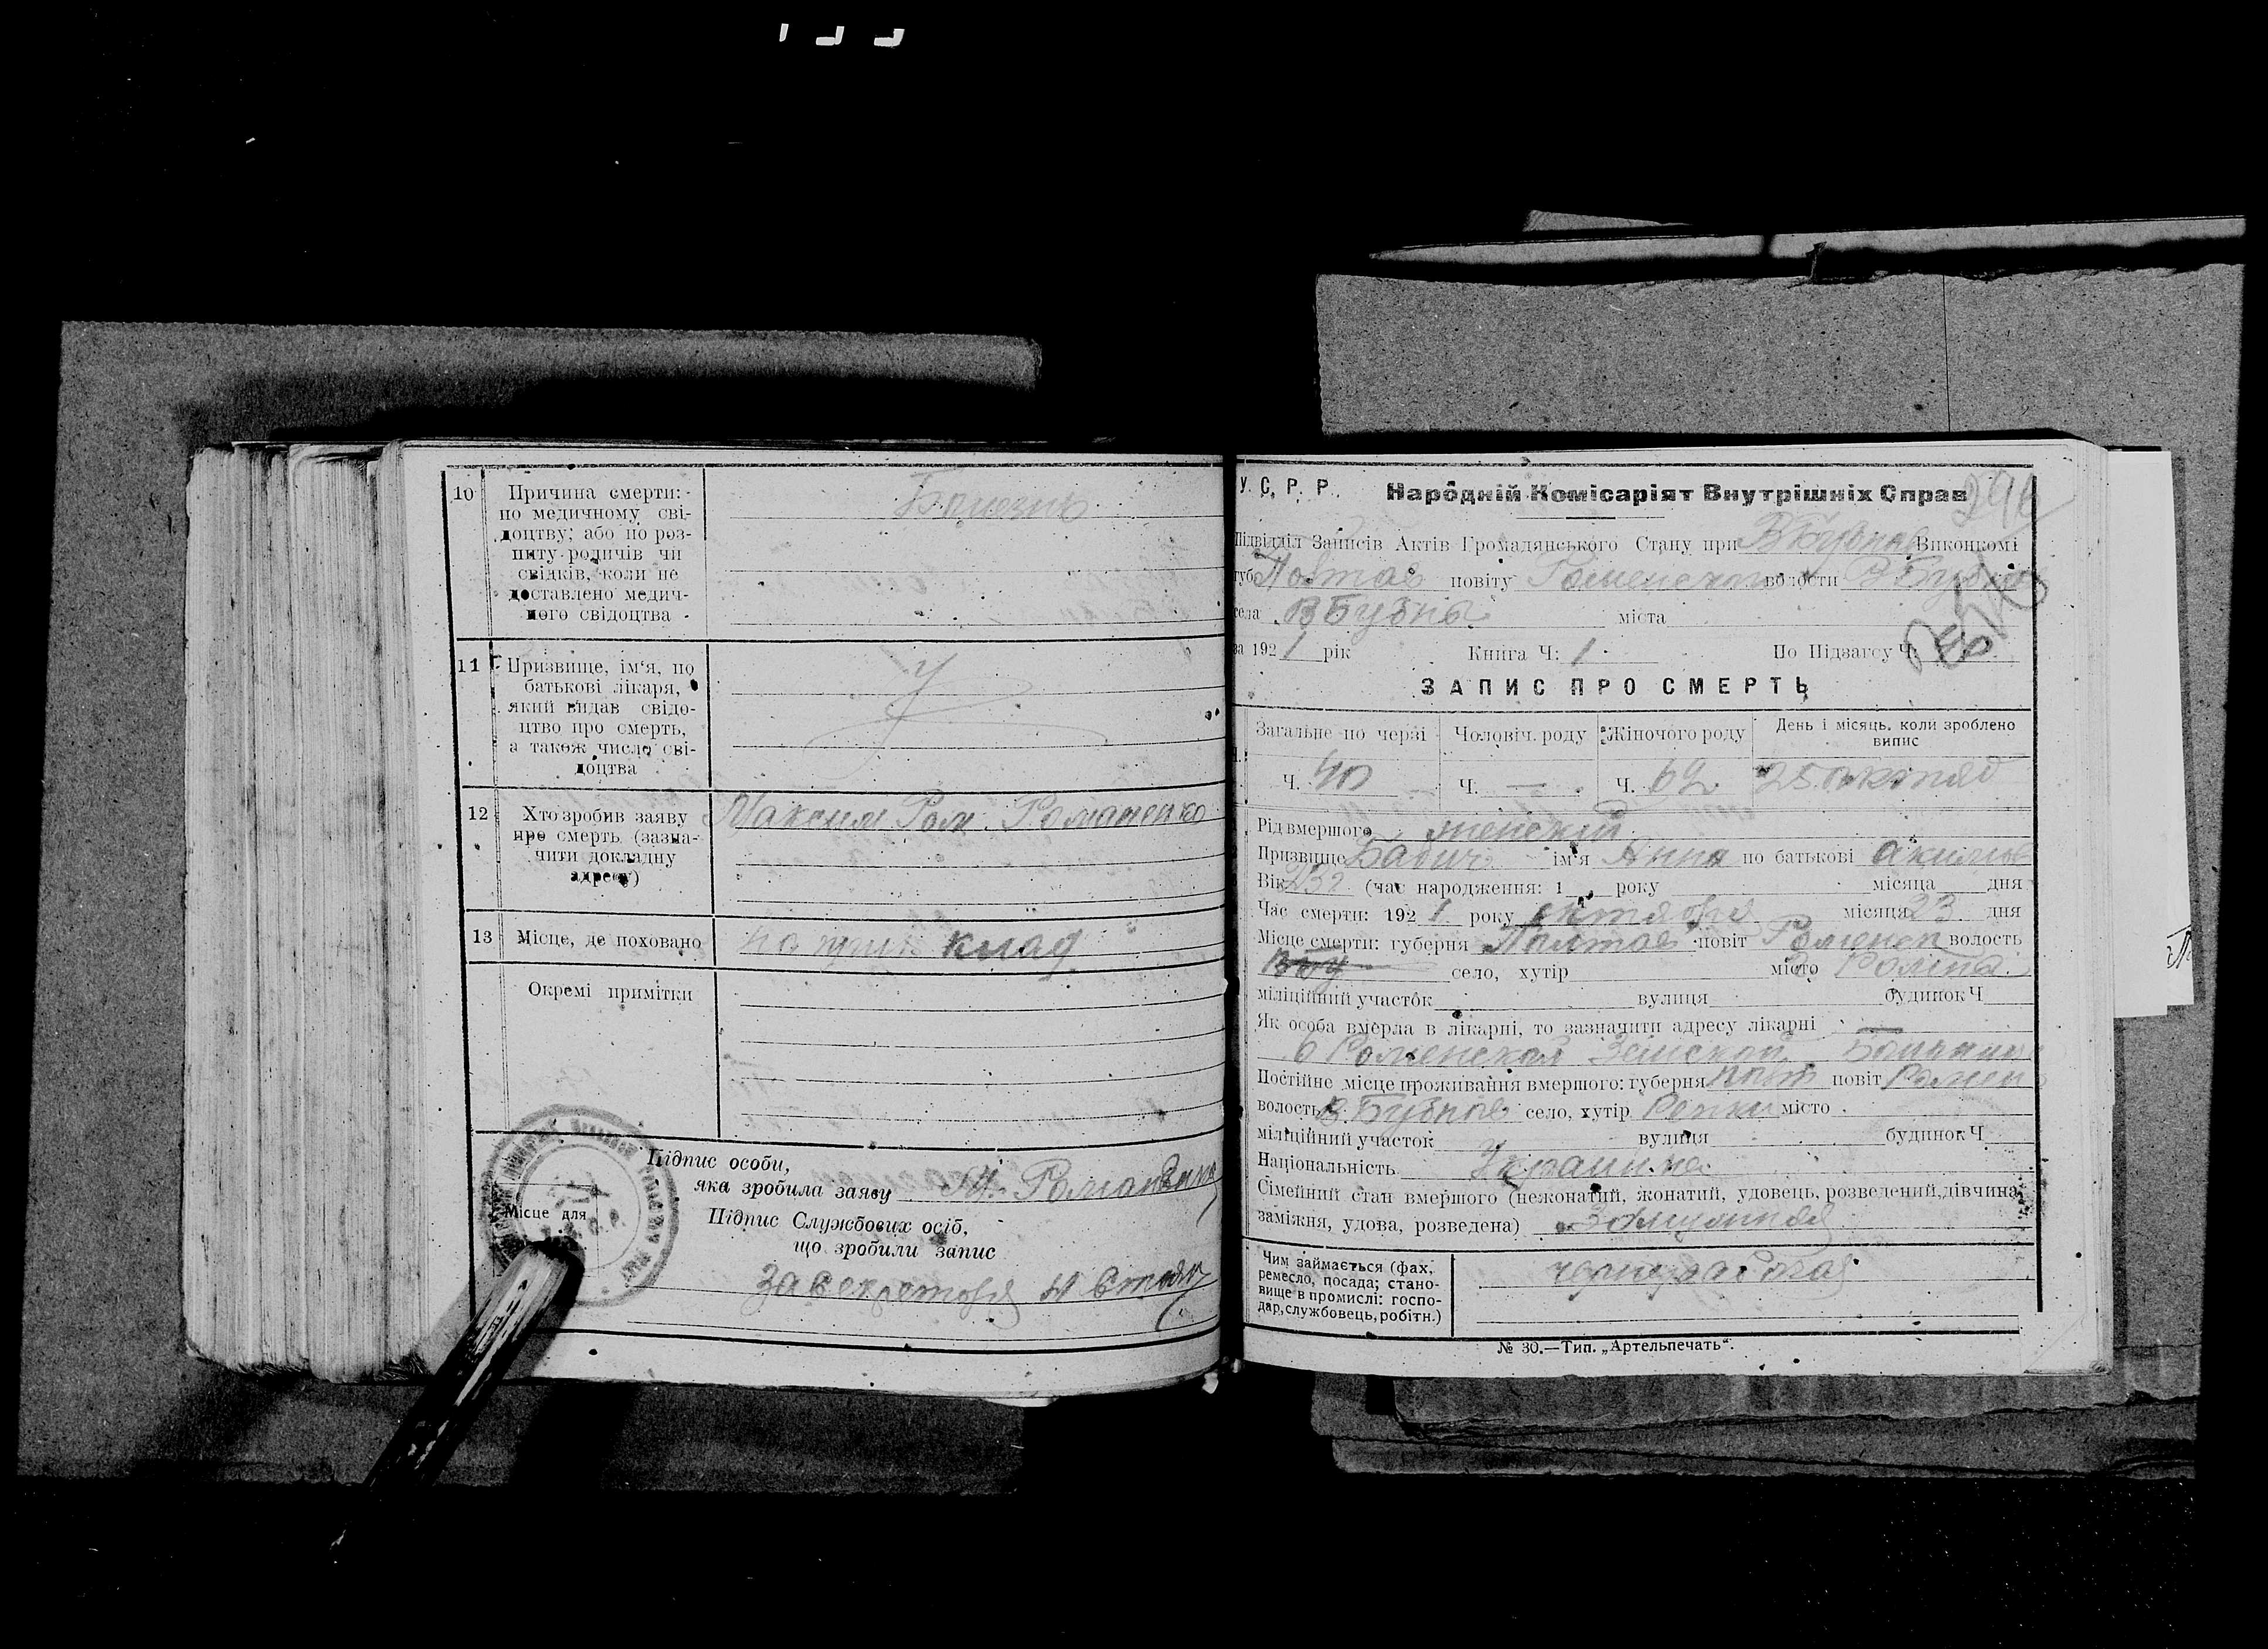 10 Причина смерти:
по медичному сві-
доцтву; або по роз-
питу родичів чи
свідків, коли не
доставлено медич-
ного свідоцтва
Болезнь
11 Призвище, ім'я, по
батькові лікаря,
який видав свідо-
цтво про смерть,
а також число сві-
доцтва
12 Хто зробив заяву
про смерть (зазна-
чити докладну
адресу)
Максим Ром. Романенко
13 Місце, де поховано
клад
Окремі примітки
Підпис особи,
яка зробила заяву М. Романенко
Місце для
Підпис Службових осіб,
що зробили запис
За секретаря
У. С. Р. Р. Народній Комісаріят Внутрішніх Справ
296
Підвідділ Записів Актів Громадянського Стану при Виконкомі
губ. Полтав повіту Роменском волости В Бубнов
села В Бубны міста
за 1921 рік Книга Ч: 1 По Підзагсу Ч:
ЗАПИС ПРО СМЕРТЬ
Загальне по черзі Чоловіч. роду Жіночого роду День і місяць, коли зроблено випис
Ч. Ч. — Ч. 62 25 октяб
Рід вмершого женский
Призвище Бабич ім'я Анна по батькові Акимов
Вік (час народження: 1 року місяця дня
Час смерти: 1921 року октября місяця 23 дня
Місце смерти: губерня Полтав повіт Ромен волость
село, хутір місто Ромны
міліційний участок вулиця будинок Ч
Як особа вмерла в лікарні, то зазначити адресу лікарні
в Роменской Земской Больнице
Постійне місце проживання вмершого: губерня Полт повіт Ромен
волость В. Бубнов село, хутір Репки місто
міліційний участок вулиця будинок Ч
Національність Украинка
Сімейний стан вмершого (нежонатий, жонатий, удовець, розведений, дівчина,
заміжня, удова, розведена) Замужняя
Чим займається (фах,
ремесло, посада; стано-
вище в промислі: госпо-
дар, службовець, робітн.)
чернорабочая
№ 30.—Тип. „Артельпечать“.